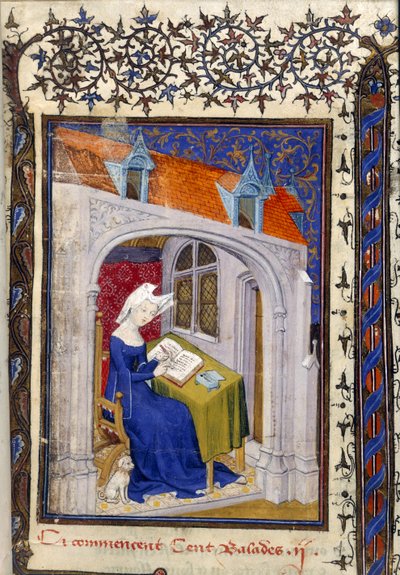 Ci commencent Cent Balades .ii.